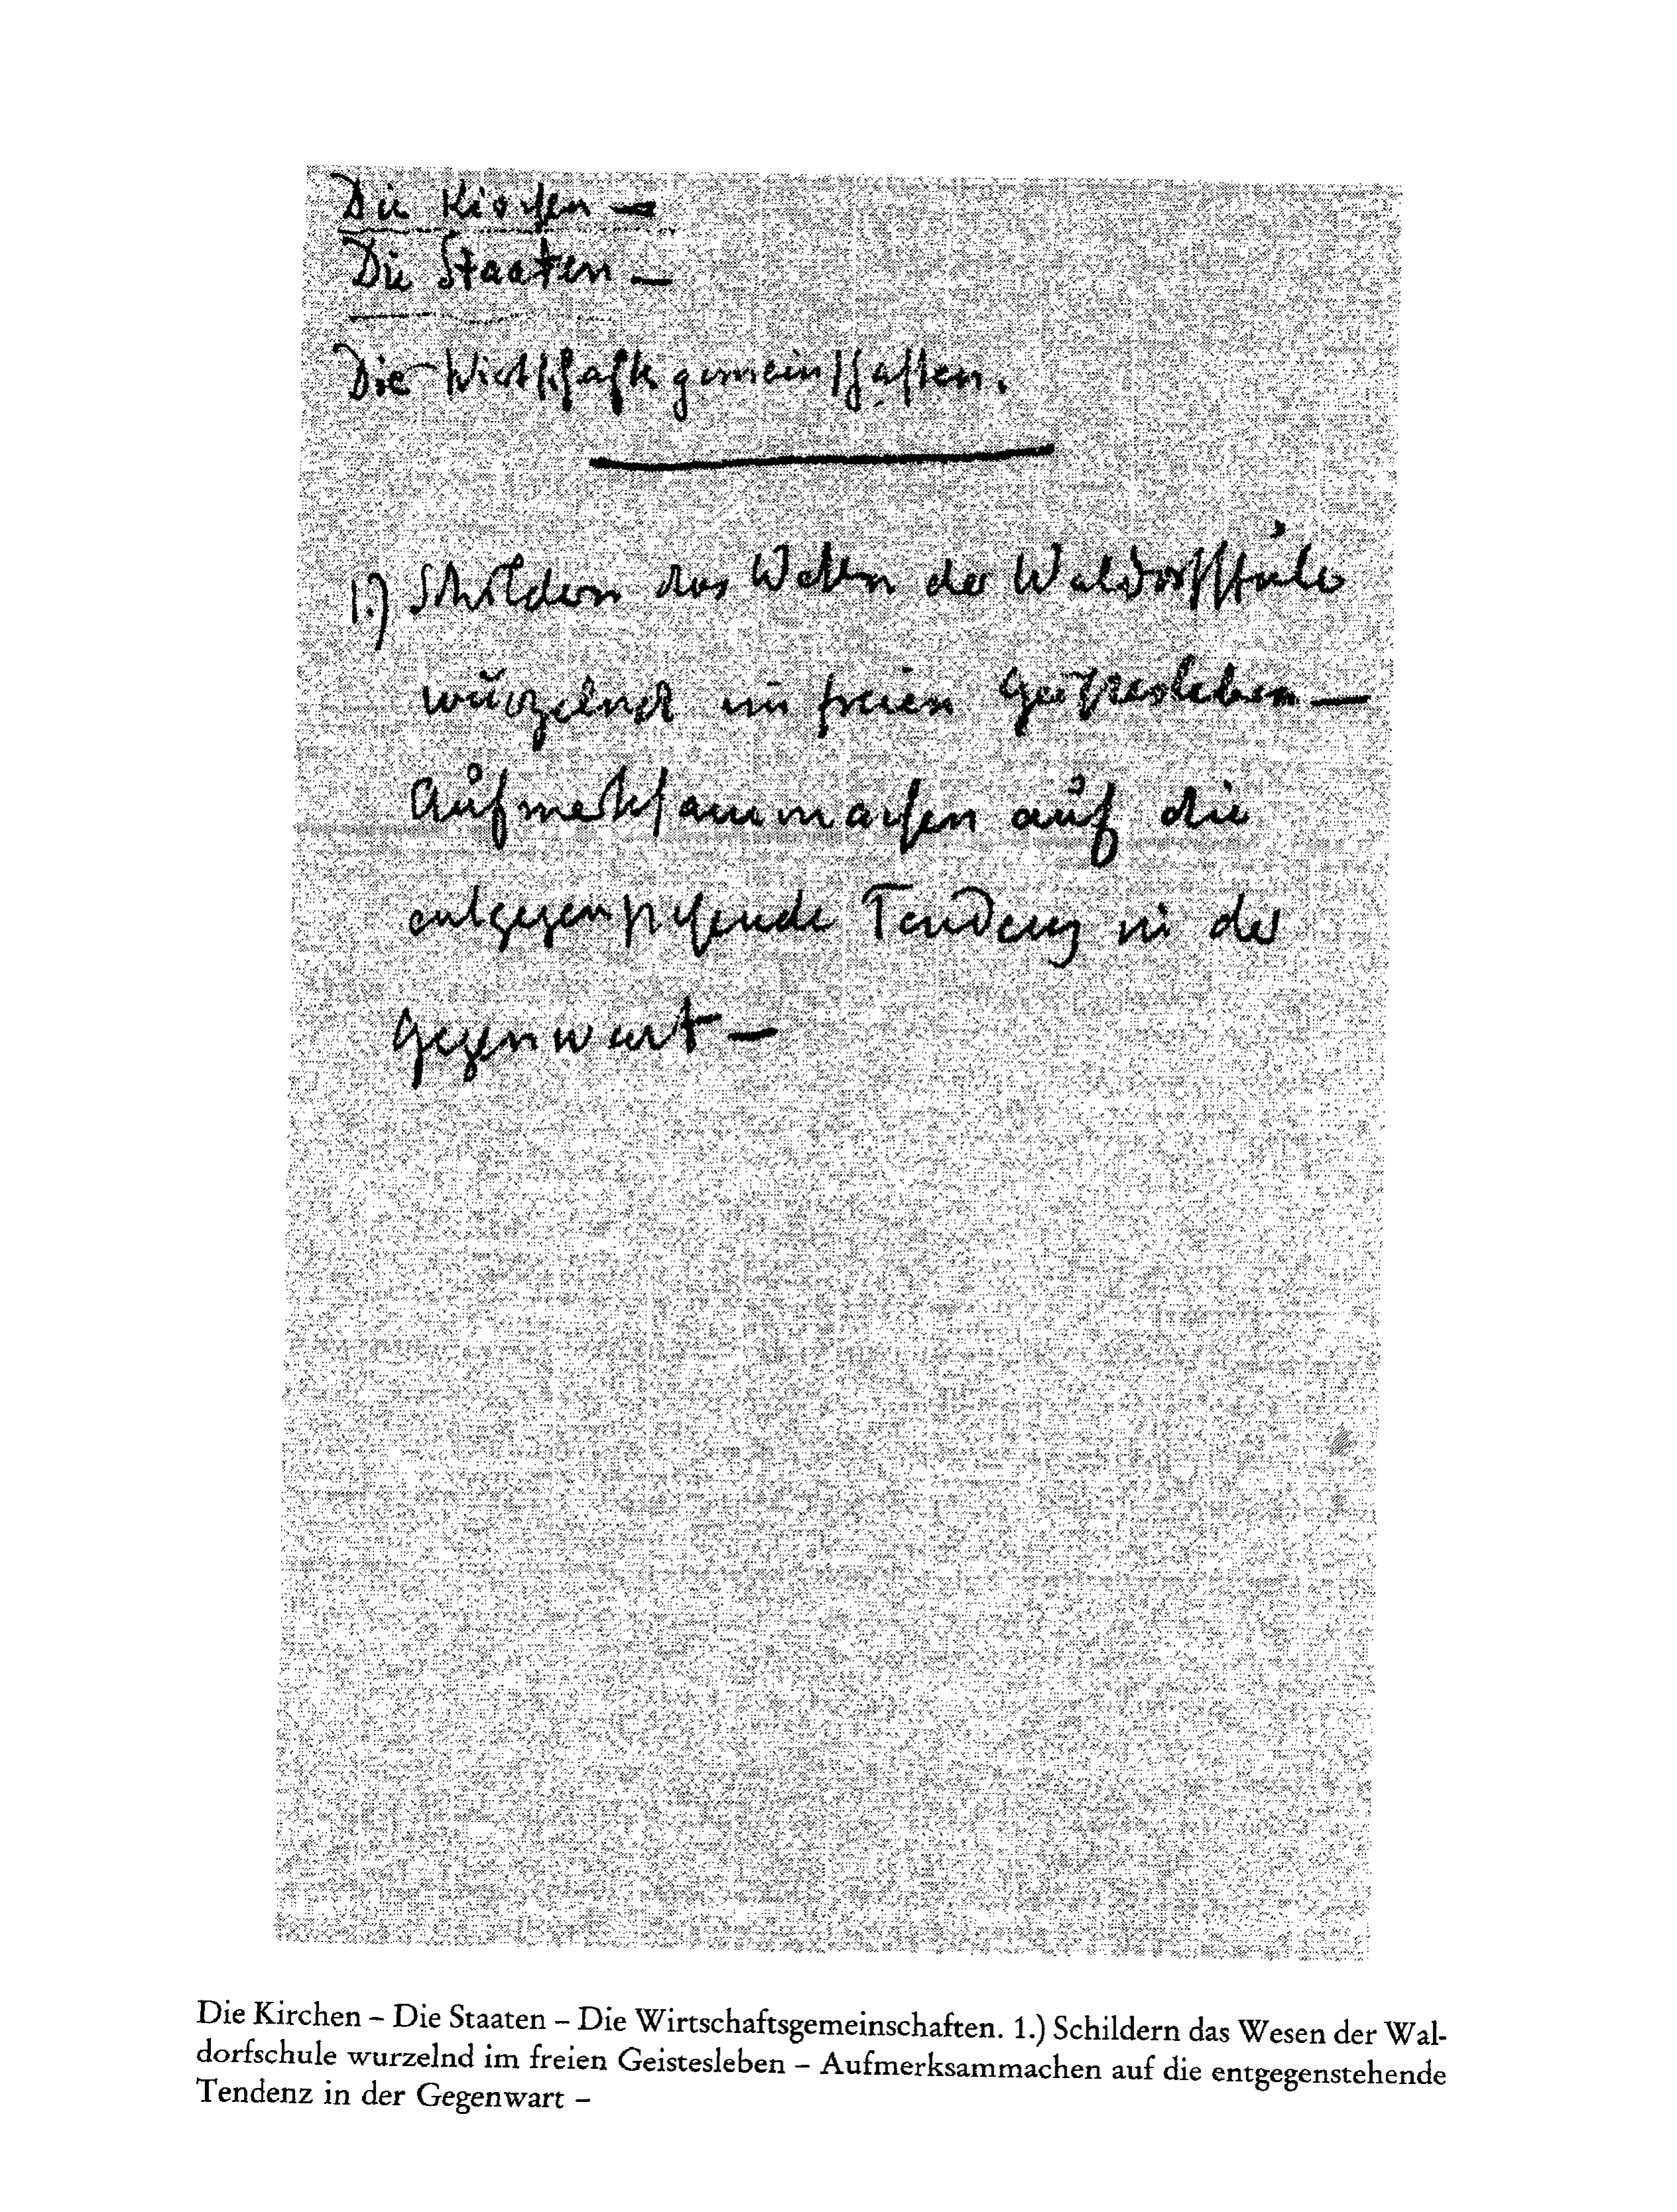 Die Kirchen –
Die Staaten –
Die Wirtschaftsgemeinschaften.
1.) Schildern das Wesen der Waldorfschule
wurzelnd im freien Geistesleben –
Aufmerksammachen auf die
entgegenstehende Tendenz in der
Gegenwart –
Die Kirchen – Die Staaten – Die Wirtschaftsgemeinschaften. 1.) Schildern das Wesen der Wal-
dorfschule wurzelnd im freien Geistesleben – Aufmerksammachen auf die entgegenstehende
Tendenz in der Gegenwart –